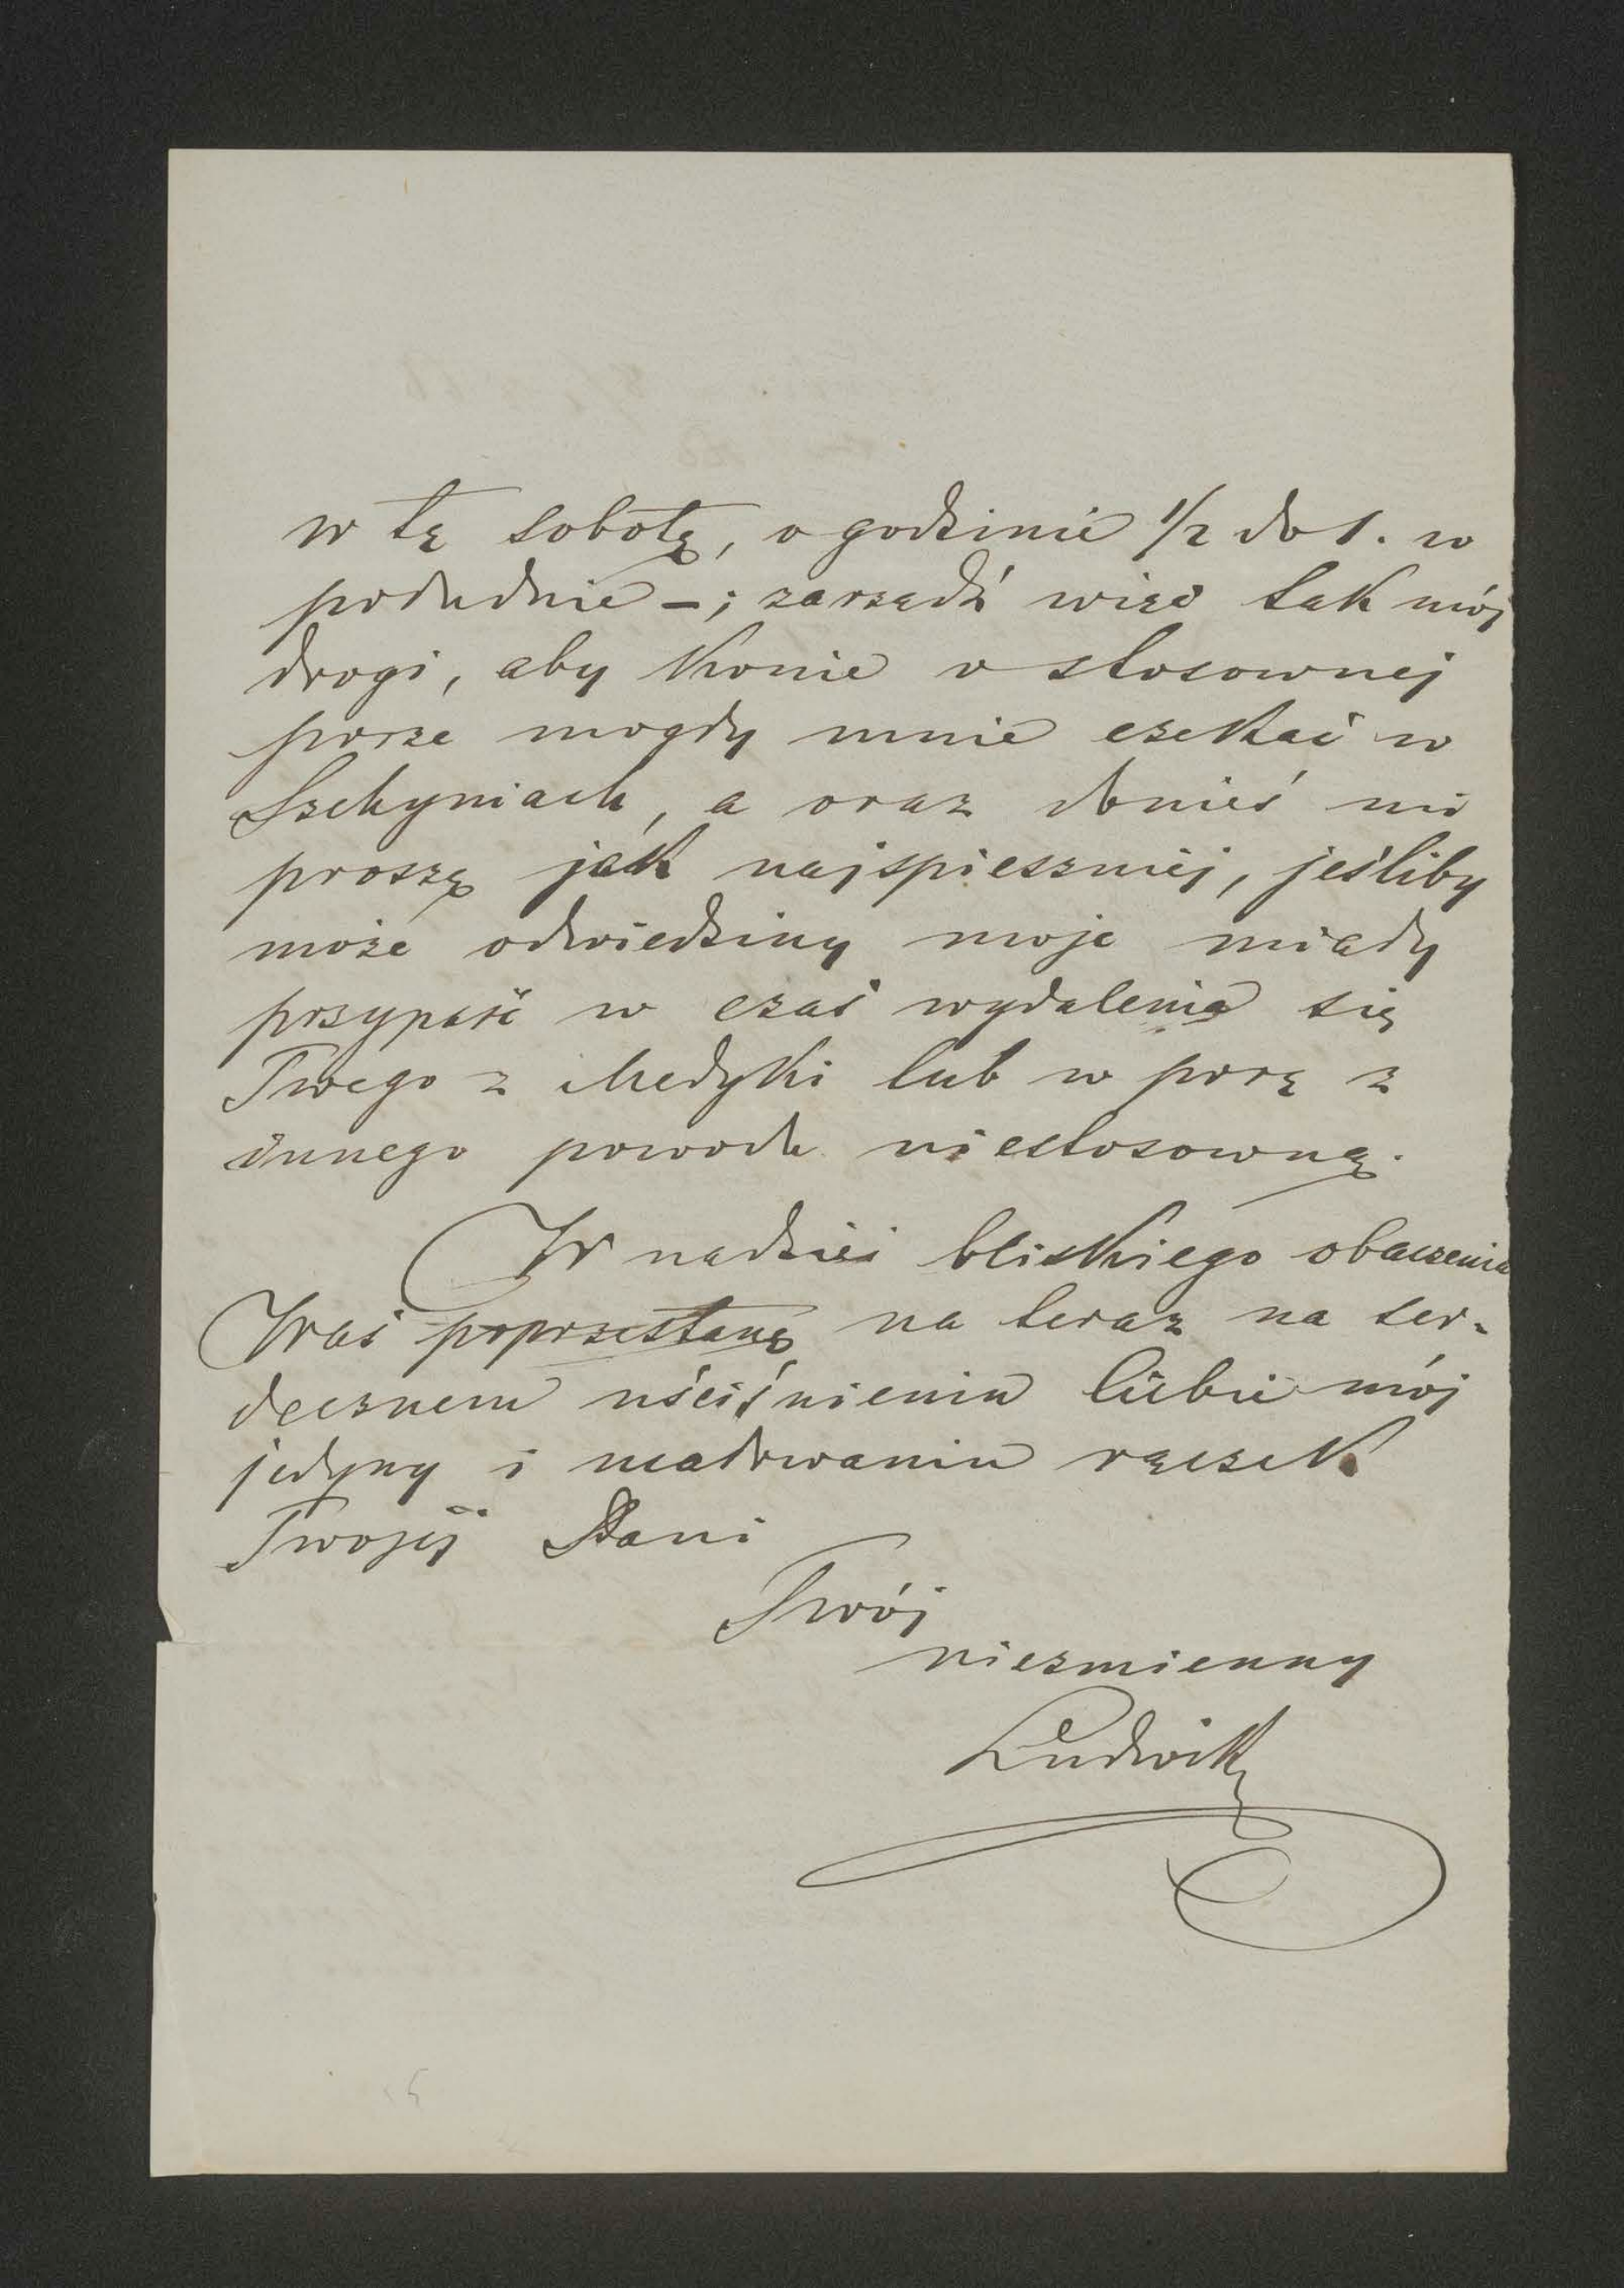 w tę sobotę, o godzinie 1/2 do 1. w
południe –; zarządź więc tak mój
drogi, aby konie o stosownej
porze mogły mnie czekać w
Szehyniach, a oraz donieś mi
proszę jak najspieszniej, jeśliby
może odwiedziny moje miały
przypaść w czas wydalenia się
Twego z Medyki lub w porę z
innego powodu niestosowną.
W nadziei bliskiego obaczenia
Was poprzestanę na teraz na ser-
decznem uściśnieniu Ciebie mój
jedyny i ucałowaniu rączek
Twojej Pani
Twój
niezmienny
Ludwik